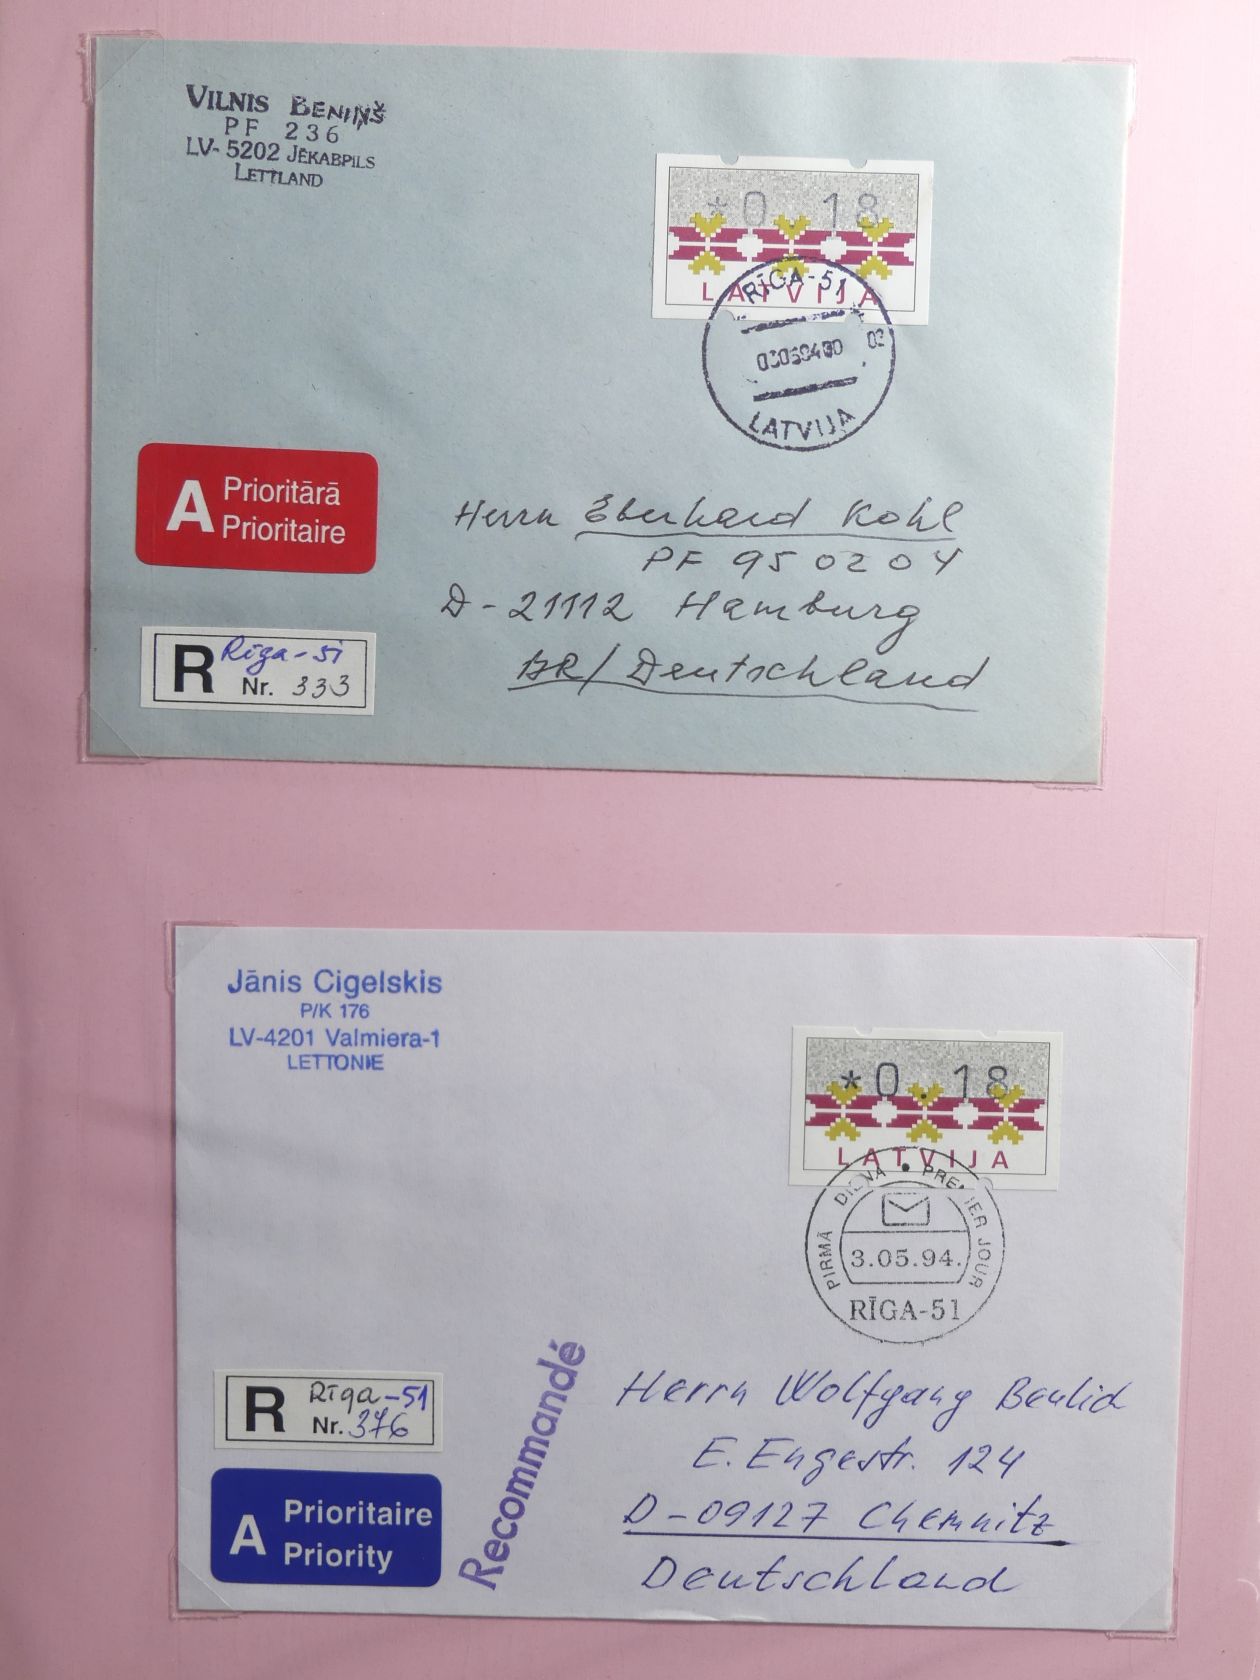 VILNIS BENIŅŠ
PF 236
LV-5202 JĒKABPILS
LETTLAND
*0.18
LATVIJA
RĪGA-51
02
LATVIJA
A Prioritārā
Prioritaire
Herrn Eberhard Kohl
PF 95 02 04
D-21112 Hamburg
BR/Deutschland
R Rīga-51
Nr. 333
Jānis Cigelskis
P/K 176
LV-4201 Valmiera-1
LETTONIE
*0.18
LATVIJA
PIRMĀ DIENA • PREMIER JOUR
3.05.94.
RĪGA-51
Recommandé
R Rīga-51
Nr. 376
A Prioritaire
Priority
Herrn Wolfgang Beulich
E. Engestr. 124
D-09127 Chemnitz
Deutschland